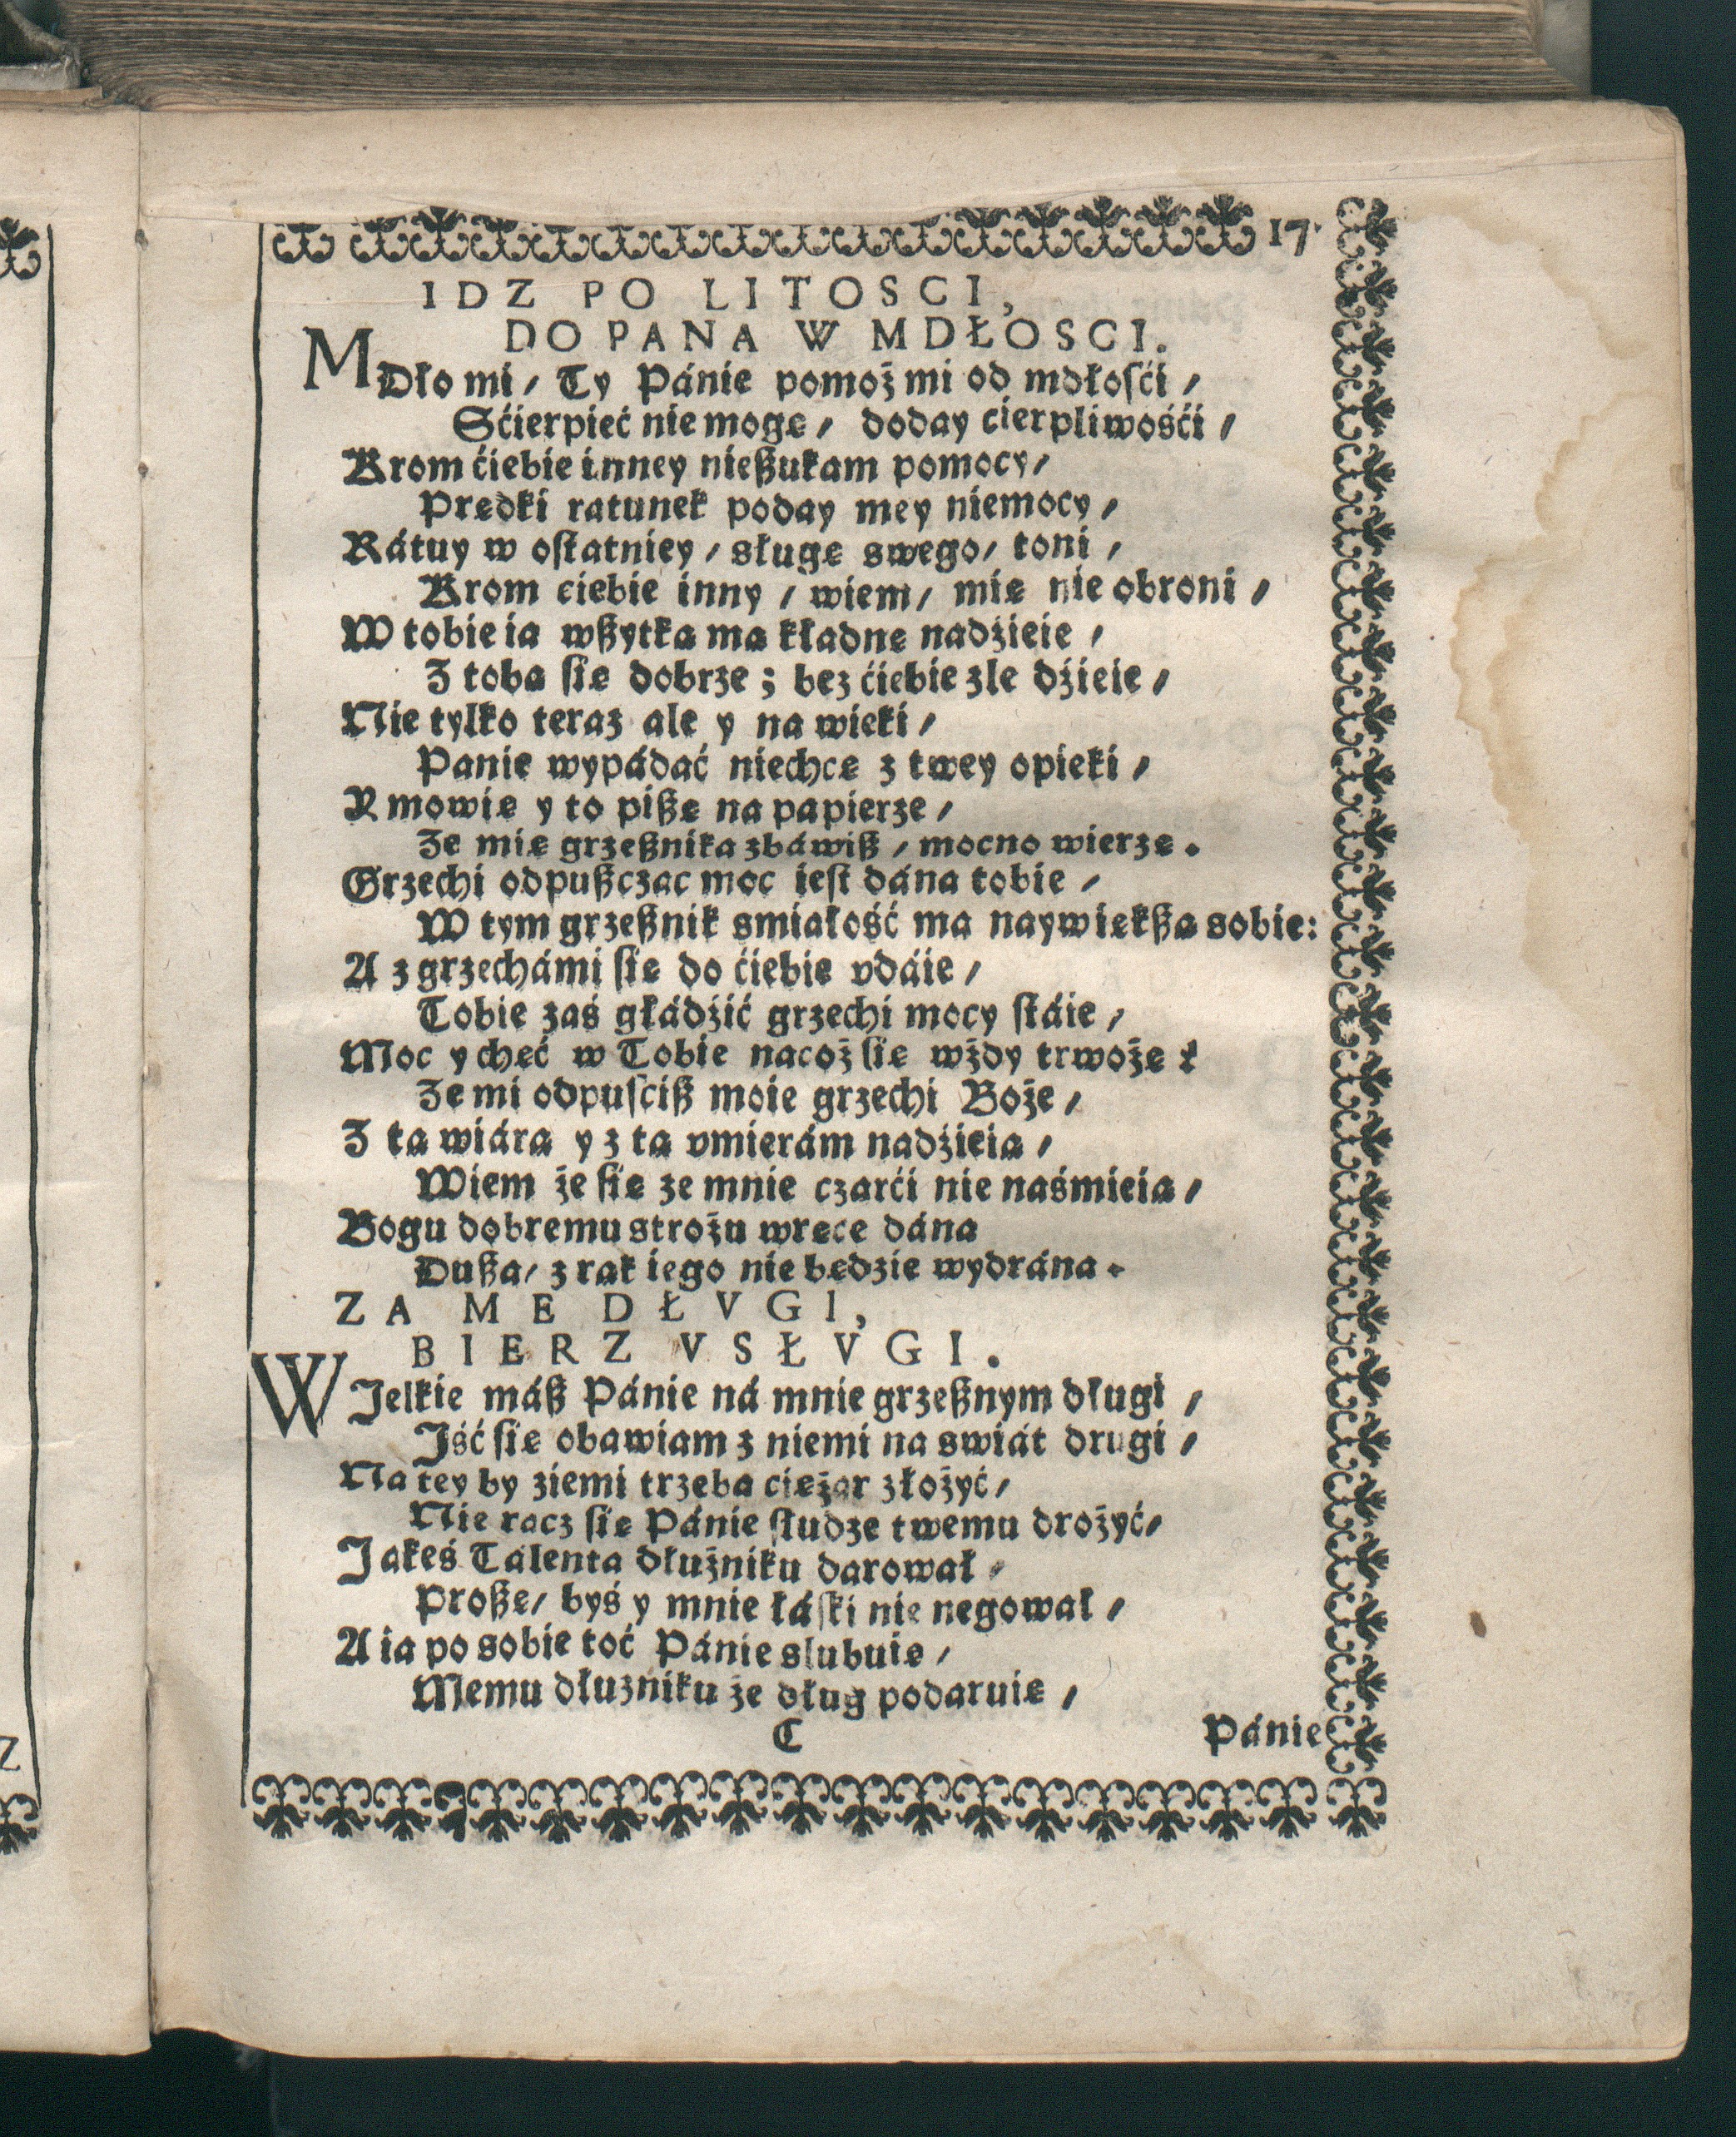 17.
IDZ PO LITOSCI,
DO PANA W MDŁOSCI.
MDło mi / Ty Pánie pomoż mi od mdłosći /
Sćierpieć nie mogę / doday cierpliwośći /
Krom ćiebie inney nießukam pomocy /
Prędki ratunek poday mey niemocy /
Rátuy w ostatniey / sługę swego / toni /
Krom ciebie inny / wiem / mię nie obroni /
W tobie ia wßytkę mą kładnę nadźieię /
Z tobą się dobrze ; bez ćiebie zle dźieie /
Nie tylko teraz ale y na wieki /
Panie wypádać niechcę z twey opieki /
Y mowię y to pißę na papierze /
Ze mię grzeßnika zbáwiß / mocno wierzę .
Grzechi odpußczac moc iest dána tobie /
W tym grzeßnik smiałość ma naywiękßą sobie :
A z grzechámi się do ćiebie vdáie /
Tobie zaś głádźić grzechi mocy stáie /
Moc y chęć w Tobie nacoż się wżdy trwożę ?
Ze mi odpusciß moie grzechi Boże /
Z tą wiárą y z tą vmierám nadźieią /
Wiem że się ze mnie czarći nie naśmieią /
Bogu dobremu strożu wręce dána
Dußa / z rąk iego nie będzie wydrána .
ZA ME DŁVGI,
BIERZ VSŁVGI.
WJelkie máß Pánie ná mnie grzeßnym długi /
Jść się obawiam z niemi na swiát drugi /
Na tey by ziemi trzeba ciężar złożyć /
Nie racz się Pánie słudze twemu drożyć /
Jakeś Talenta dłużniku darował /
Proßę / byś y mnie łáski nie negował /
A ia po sobie toć Pánie slubuię /
Memu dłuzniku że dług podaruię /
C
Pánie
Z